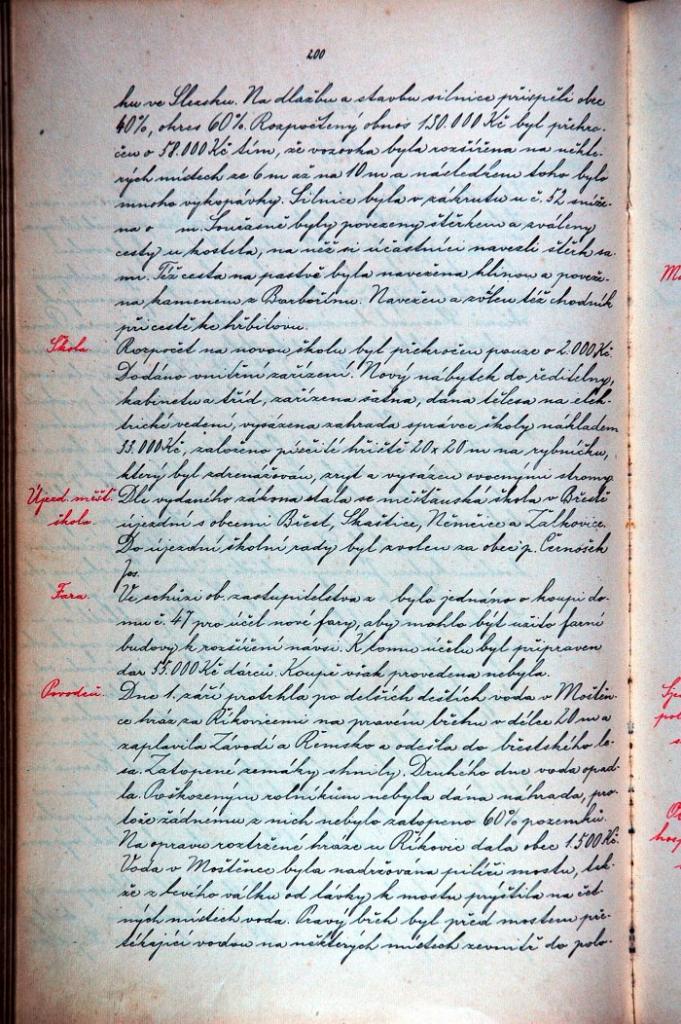 200
ku ve Slezsku. Na dlažbu a stavbu silnice přispěli obec
40%, okres 60%. Rozpočtený obnos 150.000 Kč byl překro-
čen o 58.000 Kč tím, že vozovka byla rozšířena na někte-
rých místech ze 6 m až na 10 m a následkem toho bylo
mnoho vykopávky. Silnice byla v zákrutu u č. 52 sníže-
na o m. Současně byly povezeny štěrkem a zváleny
cesty u kostela, na něž si účastníci navezli štěrk sa-
mi. Též cesta na pastvě byla navežena hlinou a poveže-
na kamenem z Barbořinu. Navežen a zvýšen též chodník
při cestě ke hřbitovu.
Škola Rozpočet na novou školu byl překročen pouze o 2.000 Kč.
Dodáno vnitřní zařízení. Nový nábytek do ředitelny,
kabinetu a tříd, zařízena šatna, dána tělesa na elek-
trické vedení, vysázena zahrada správce školy nákladem
33.000 Kč, založeno písčité hřiště 20x20 m na rybníčku,
který byl zdrenážován, zryt a vysázen ovocnými stromy.
Újezd. měšť. Dle vydaného zákona stala se měšťanská škola v Břestě
škola. újezdní s obcemi Břest, Skaštice, Němčice a Žalkovice.
Do újezdní školní rady byl zvolen za obec p. Černošek
Jos.
Fara. Ve schůzi ob. zastupitelstva z bylo jednáno o koupi do-
mu č. 47 pro účel nové fary, aby mohlo být užito farní
budovy k rozšíření návsi. K tomu účelu byl připraven
dar 55.000 Kč dárců. Koupě však provedena nebyla.
Povodeň. Dne 1. září protrhla po delších deštích voda v Moštěn-
ce hráz za Říkovicemi na pravém břehu v délce 20 m a
zaplavila Závodí a Řemsko a odešla do břestského le-
sa. Zatopené zemáky shnily. Druhého dne voda opad-
la. Poškozeným rolníkům nebyla dána náhrada, pro-
tože žádnému z nich nebylo zatopeno 60% pozemků.
Na opravu roztržené hráze u Říkovic dala obec 1.500 Kč.
Voda v Moštěnce byla nadržována pilíři mostu, tak-
že z levého válku od lávky k mostu prýštila na čet-
ných místech voda. Pravý břeh byl před mostem pře-
tékající vodou na některých místech zevnitř do polo-